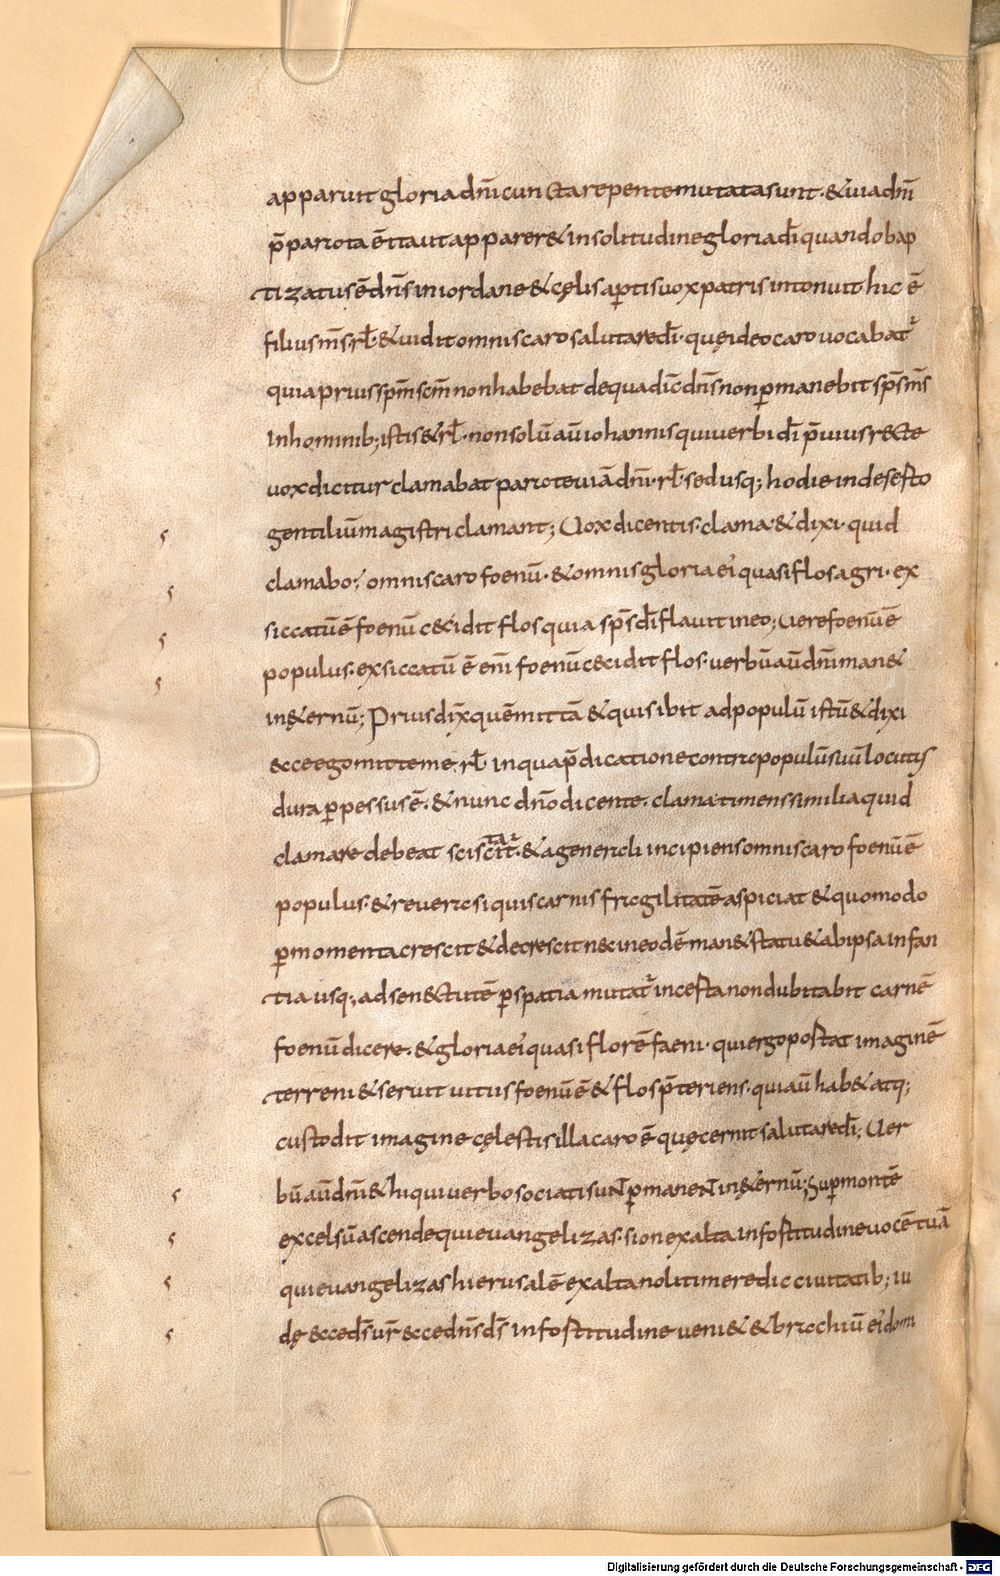 apparuit gloria dn̄i cuncta repente mutata sunt · & uia dn̄i
p̄parata ē ita ut apparer& in solitudine gloria dī quando bap
tizatus ē dn̄s in iordane & cęlis aꝑtis uox patris intonuit hic ē
filius m̄s · rł · & uidit omnis caro salutare dī · quę ideo caro uocabat᷑
quia prius sp̄m sc̄m non habebat de qua dic̄ dn̄s non ꝑmanebit sp̄s m̄s
In hominib; istis & rł · non solū aū iohannis qui uerbi dī p̄uius recte
uox dicitur clamabat parate uiā dn̄i · rł · sed usq; hodie in deserto
gentiliū magistri clamant; Uox dicentis · clama · & dixi · quid
clamabo? omnis caro foenū · & omnis gloria ei' quasi flos agri · ex
siccatū ē foenū c&idit flos quia sp̄s dī flauit in eo; Uere foenū ē
populus · exsiccatū ē eni foenū c&idit flos · uerbū aū dn̄i man&
in &ernū; Prius dix̄ quē mittā & quis ibit ad populū istū & dixi
&ce ego mitte me · rł in qua p̄dicatione contra populū suū locut'
dura ꝑpessus ē · & nunc dn̄o dicente · clama timens similia quid
clamare debeat sciscitat᷑ · & a generali incipiens omnis caro foenū ē
populus · & reuera si quis carnis fragilitatē aspiciat & quomodo
ꝑ momenta crescit & decrescit n&c in eodē man& statu & ab ipsa infan
tia usq; ad sen&tutē ꝑ spatia mutat᷑ incesta non dubitabit carnē
foenū dicere · & gloria ei' quasi florē faeni · qui ergo postat imaginē
terreni & seruit uitiis foenū ē & flos p̄teriens · qui aū hab& atq;
custodit imagine cęlestis illa caro ē quę cernit salutare dī; Uer
bū aū dn̄i & hi qui uerbo sociati sunt ꝑmanent in &ernū; Suꝑ montē
excelsū ascende qui euangelizas · sion exalta in fortitudine uocē tuā
qui euangelizas hierusalē exalta noli timere dic ciuitatib; iu
dę &ce ds̄ ur̄ &ce dn̄s ds̄ in fortitudine ueni& & brachiū ei' domi
Digitalisierung gefördert durch die Deutsche Forschungsgemeinschaft - DFG